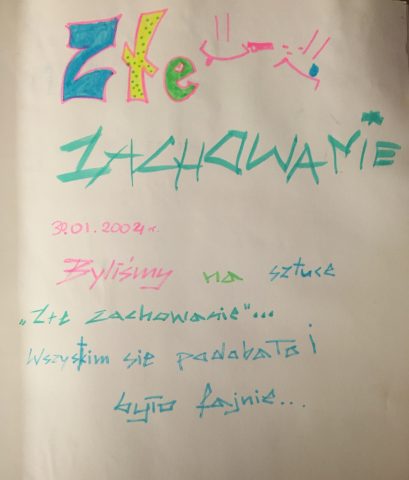 Złe
ZACHOWANIE
30.01.2002r.
Byliśmy na sztuce
„Złe zachowanie"...
Wszystkim się podobało i
było fajnie...